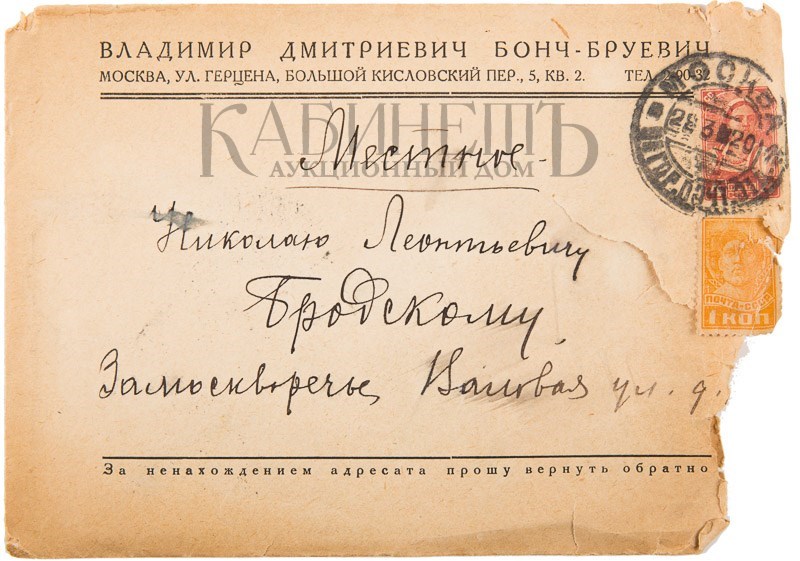 ВЛАДИМИР ДМИТРИЕВИЧ БОНЧ-БРУЕВИЧ
МОСКВА, УЛ. ГЕРЦЕНА, БОЛЬШОЙ КИСЛОВСКИЙ ПЕР., 5, КВ. 2. ТЕЛ. 2-90-32
МОСКВА
КАБИНЕТЪ
АУКЦИОННЫЙ ДОМ
Местное.
Николаю Леонтьевичу
Бродскому,
ПОЧТА СССР
1 КОП
Замоскворечье, Валовая ул. д.
За ненахождением адресата прошу вернуть обратно